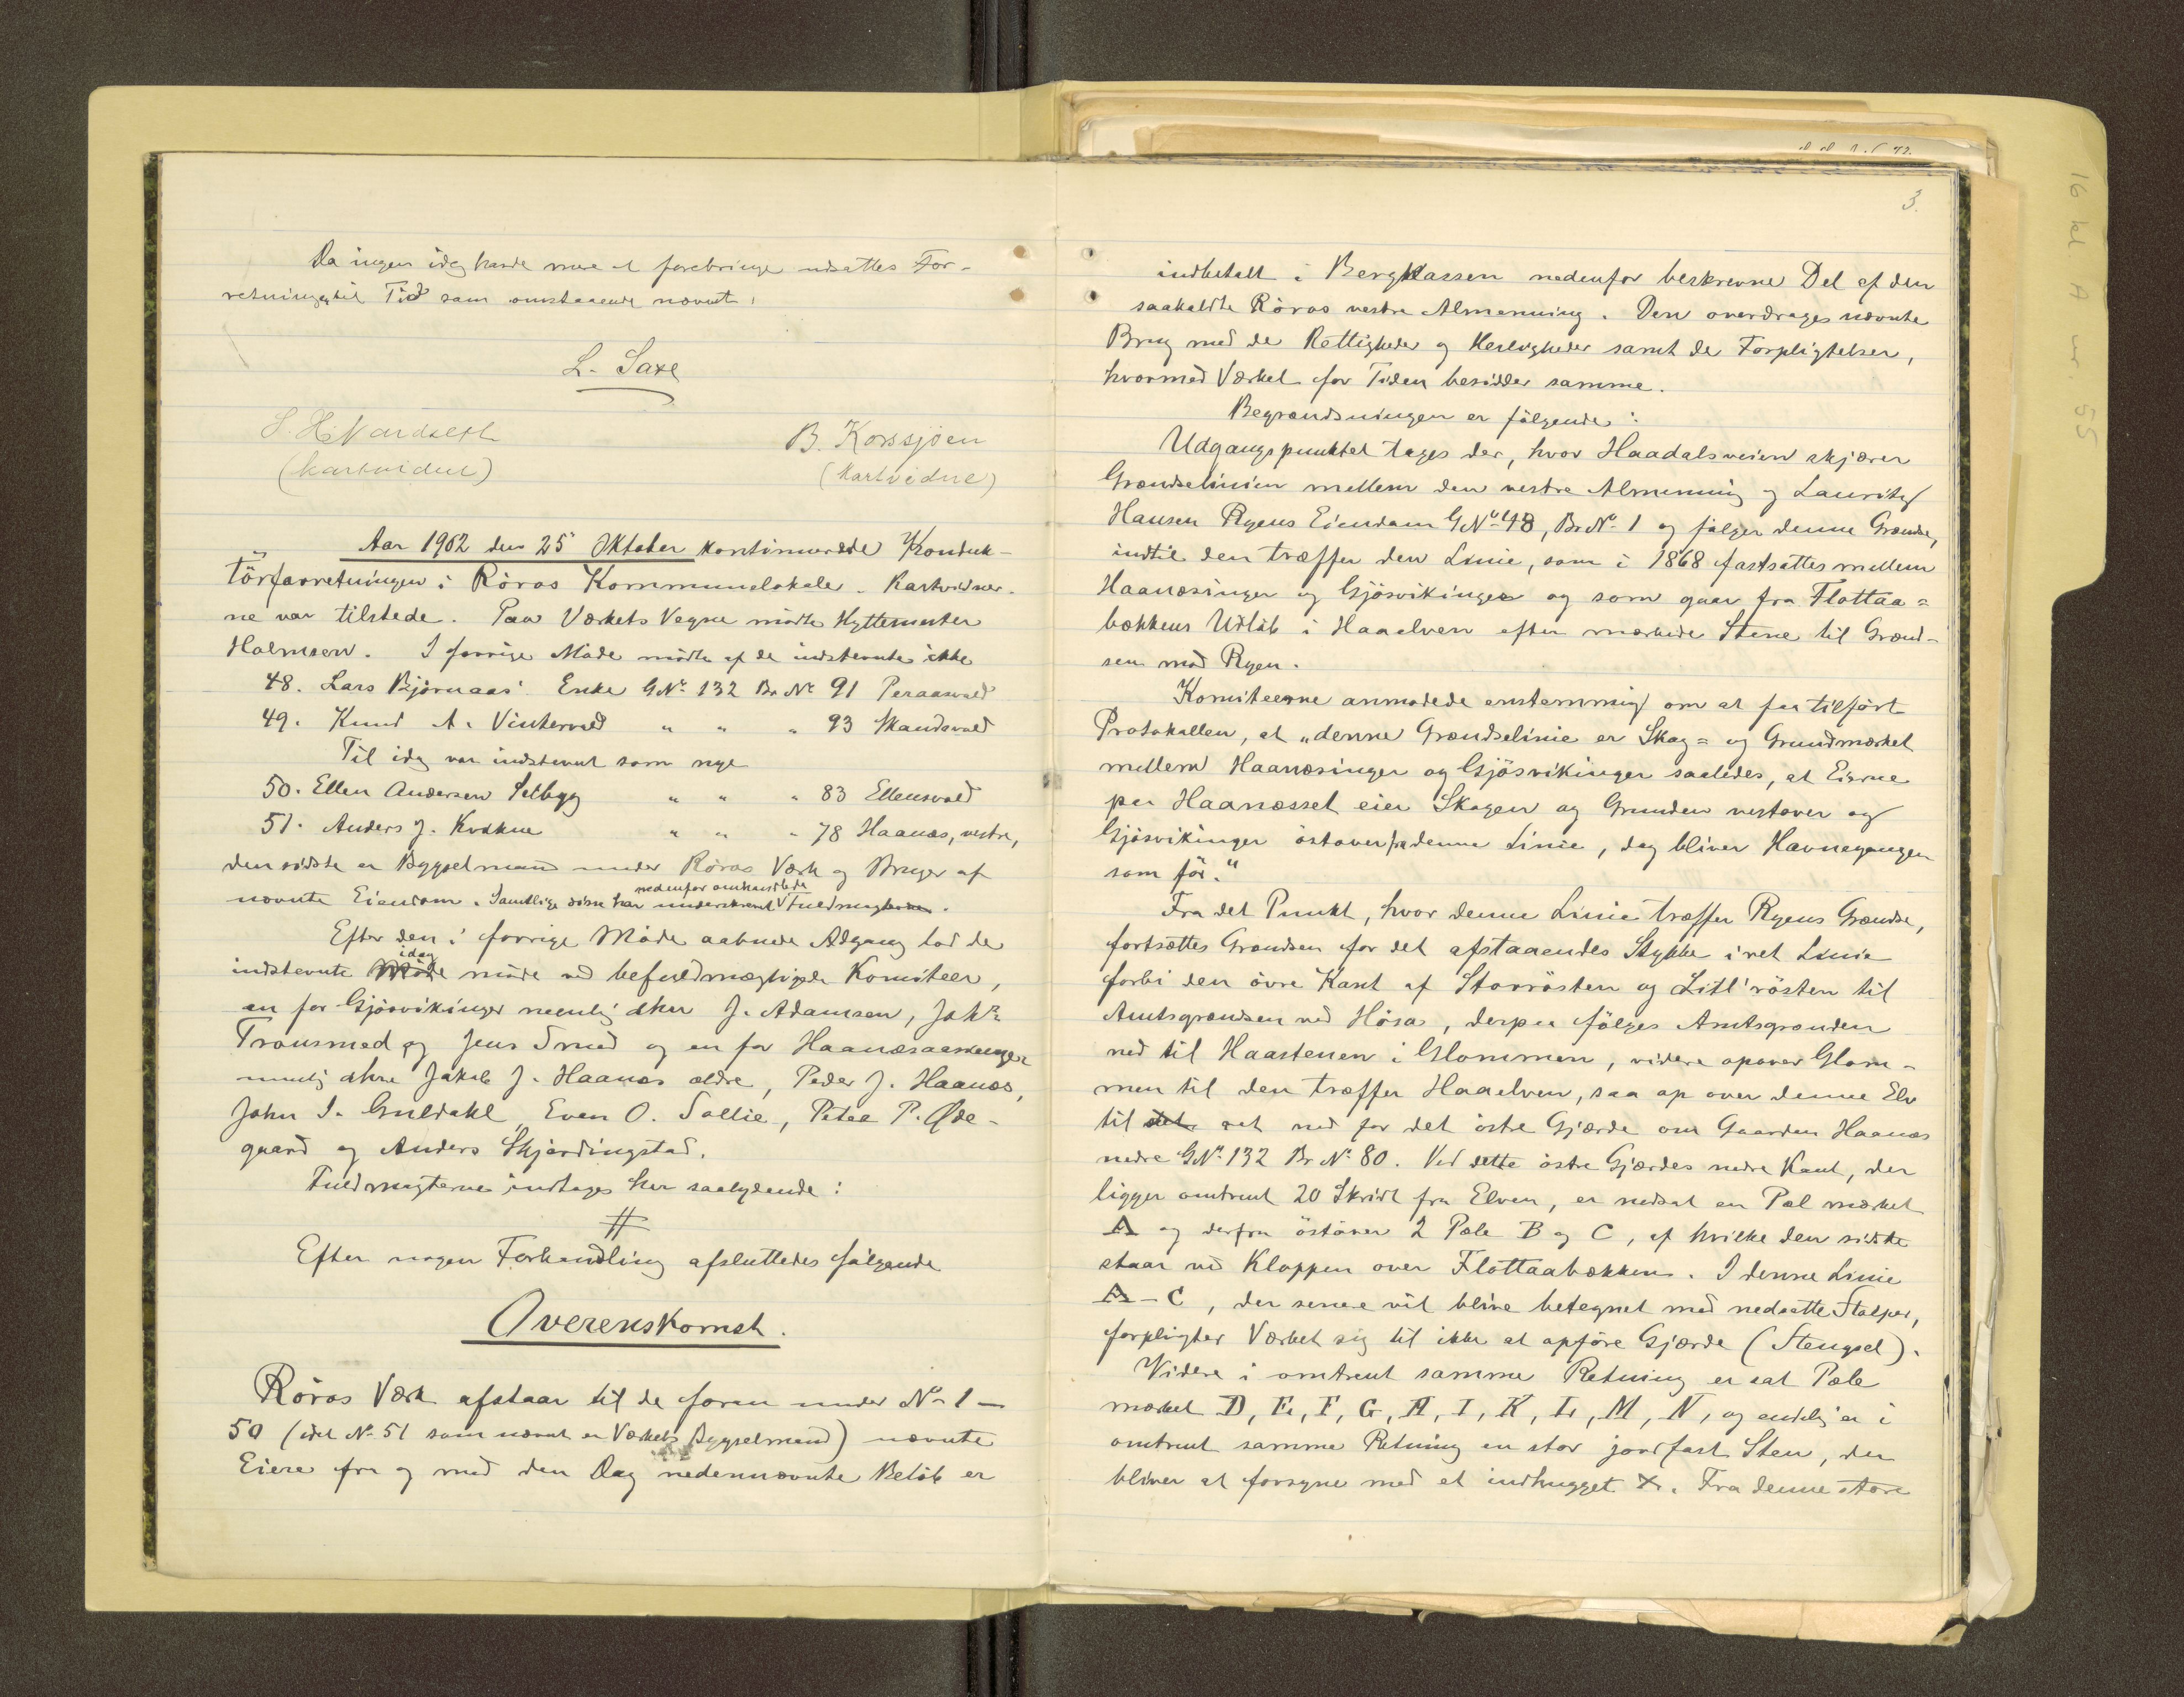 Da ingen idag havde mere at forebringe udsattes For-
retningen til Tid som omstaaende nævnt.
L. Saxe
(kartvidne)
B. Korssjøen
(Kartvidne)
Aar 1902 den 25 Oktober kontinuerede Konduk-
törforretningen i Röros Kommunelokale. Kartvidner-
ne var tilstede. Paa Værkets Vegne mödte Hyttemester
Holmsen. I forrige Möde mödte af de indstevnte ikke
48. Lars Björnaas' Enke GNo 132 Br No 91 Peraasvold
49. Knud A. Vintervold " " " 93 Skandsvold
Til idag var indstevnt som nye
50. Ellen Andersen Selbyg " " " 83 Ellensvold
51. Anders J. Kvikne " " " 78 Haanæs, vestre,
den sidste er Bygselmand under Röros Værk og Bruger af
nedenfor omhandlede
nævnte Eiendom. Samtlige disse har underskrevet Fuldmagterne.
Efter den i forrige Möde aabnede Adgang lod de
idag
indstevnte Möde möde ved befuldmægtigede Komiteer,
en for Gjösvikinger nemlig dhrr J. Adamsen, Johs
Tronsmed og Jens Smed og en for Haanæsaasninger
nemlig dhrr Jakob J. Haanæs ældre, Peder J. Haanæs,
John I. Guldahl, Even O. Sollie, Peter P. Øde-
gaard og Anders Skjærdingstad.
Fuldmagterne indtages her saalydende:
#
Efter nogen Forhandling afsluttedes følgende
Overenskomst.
Röros Værk afstaar til de foran under No 1 –
50 (idet No 51 som nævnt er Værkets Bygselmand) nævnte
Eiere fra og med den Dag nedennævnte Belöb er
3.
indbetalt i Bergkassen nedenfor beskrevne Del af den
saakaldte Röros vestre Almenning. Den overdrages nævnte
Brug med de Rettigheder og Herligheder samt de Forpligtelser,
hvormed Værket for Tiden besidder samme.
Begrændsningen er fölgende:
Udgangspunktet tages der, hvor Haadalsveien skjærer
Grændselinien mellem den vestre Almenning og Lauritz
Hansen Ryens Eiendom GNo 48, Br No 1 og fölger denne Grændse,
indtil den træffer den Linie, som i 1868 fastsattes mellem
Haanæsinger og Gjösvikinger og som gaar fra Flottaa=
bækkens Udlöb i Haaelven efter mærkede Stene til Grænd-
sen mod Ryen.
Komiteerne anmodede enstemmig om at faa tilfört
Protokollen, at „denne Grændselinie er Skog= og Grundmærket
mellem Haanæsinger og Gjösvikinger saaledes, at Eierne
paa Haanæsset eier Skogen og Grunden vestover og
Gjösvikinger östover fra denne Linie, dog bliver Havnegangen
som för."
Fra det Punkt, hvor denne Linie træffer Ryens Grændse,
fortsættes Grændsen for det afstaaendes Stykke i ret Linie
forbi den övre Kant af Storrösten og Litl'rösten til
Amtsgrændsen ved Hösa, derpaa fölges Amtsgrændsen
ned til Haastenen i Glommen, videre opover Glom-
men til den træffer Haaelven, saa op over denne Elv
til det ret ned for det östre Gjærde om Gaarden Haanæs
nedre GNo 132 Br No 80. Ved dette östre Gjærdes nedre Kant, der
ligger omtrent 20 Skridt fra Elven, er nedsat en Pæl mærket
A og derfra östover 2 Pæle B og C, af hvilke den sidste
staar ved Kloppen over Flottaabækken. I denne Linie
A – C, der senere vil blive betegnet med nedsatte Stolper,
forpligter Værket sig til ikke at opföre Gjærde (Stengsel).
Videre i omtrent samme Retning er sat Pæle
mærket D, E, F, G, H, I, K, L, M, N, og endelig er i
omtrent samme Retning en stor jordfast Sten, der
bliver at forsyne med et indhugget X. Fra denne store
16 hd A nr. 55